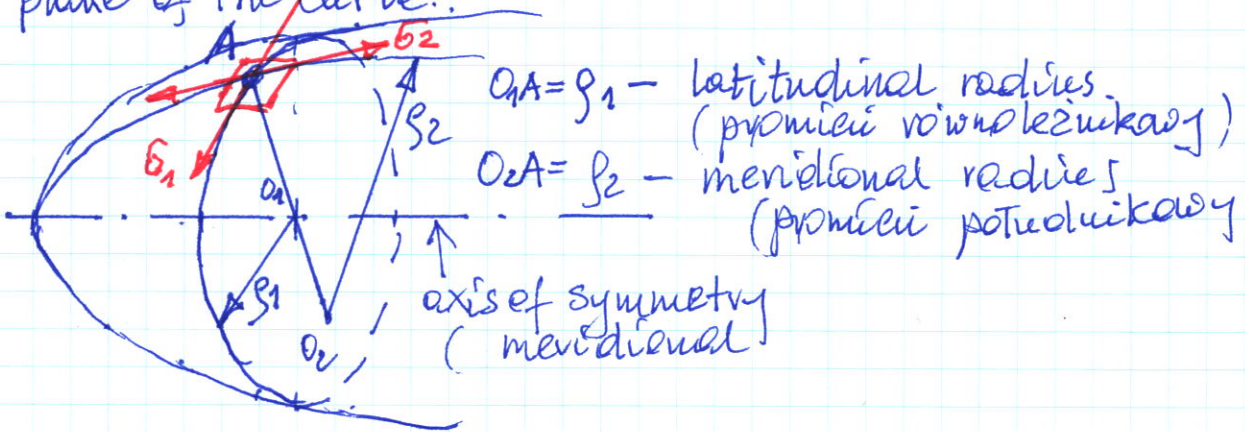 plane of the curve..
A
σ2
O1A = ρ1 - latitudinal radius
(promień równoleżnikowy)
ρ2
σ1
O2A = ρ2 - meridional radius
(promień południkowy
O1
ρ1
axis of symmetry
O2
( meridional